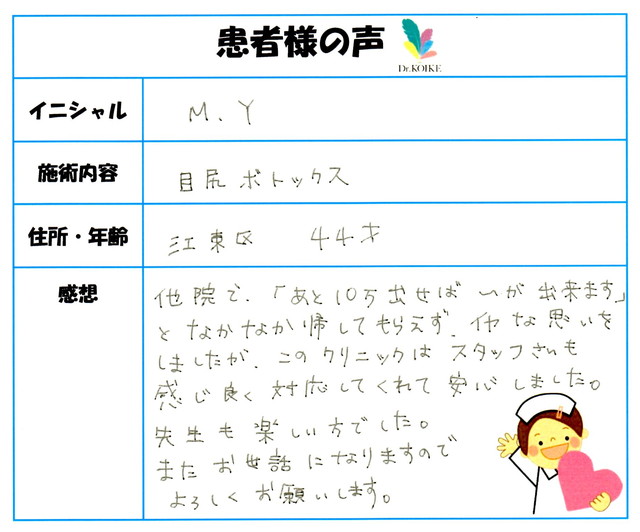 患者様の声
Dr.KOIKE
イニシャル
M.Y
施術内容
目尻ボトックス
住所・年齢
江東区 44才
感想
他院で、「あと10万出せば〜が出来ます」
となかなか帰してもらえず、イヤな思いを
しましたが、このクリニックはスタッフさんも
感じ良く対応してくれて安心しました。
先生も楽しい方でした。
またお世話になりますので
よろしくお願いします。